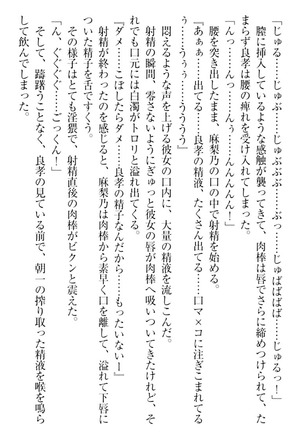 「じゅる……じゅぶ……じゅぶぶぶ……ぶっ……じゅばばば……じゅるっ！」
膣に挿入しているような感触が襲ってきて、肉棒は唇でさらに締めつけられて、た
まらず良孝は腰の痺れを受け入れてしまった。
「んっ……んっ……んーっ……んんんんっ！」
「あぁぁ……出てる……良孝の精液、たくさん出てる……口マ×コに注ぎこまれて
う……うぅぅ……うぅぅぅぅっ！」
腰を突き出したまま、麻梨乃の口の中で射精を始める。
悶えるような声を上げる彼女の口内に、大量の精液を流しこんだ。
射精の瞬間、零さないようにぎゅっと彼女の唇が肉棒へ吸いついてきたけれど、そ
れでも口元には白濁がトロリと溢れてしまう。
「ダメ……こぼしたらダメ……良孝の精子なんだから……もったいないー」
射精が終わったのを感じると、麻梨乃は肉棒から素早く口を離し、溢れて下唇に
ついた精子を舌ですくう。
その様子はとても淫猥で、射精直後の肉棒がビクンと震えた。
「ん、ぐぐぐ……ごっくん！」
そして、躊躇うことなく、良孝の見ている前で、朝一の搾り取った精液を喉を鳴ら
して飲んでしまった。